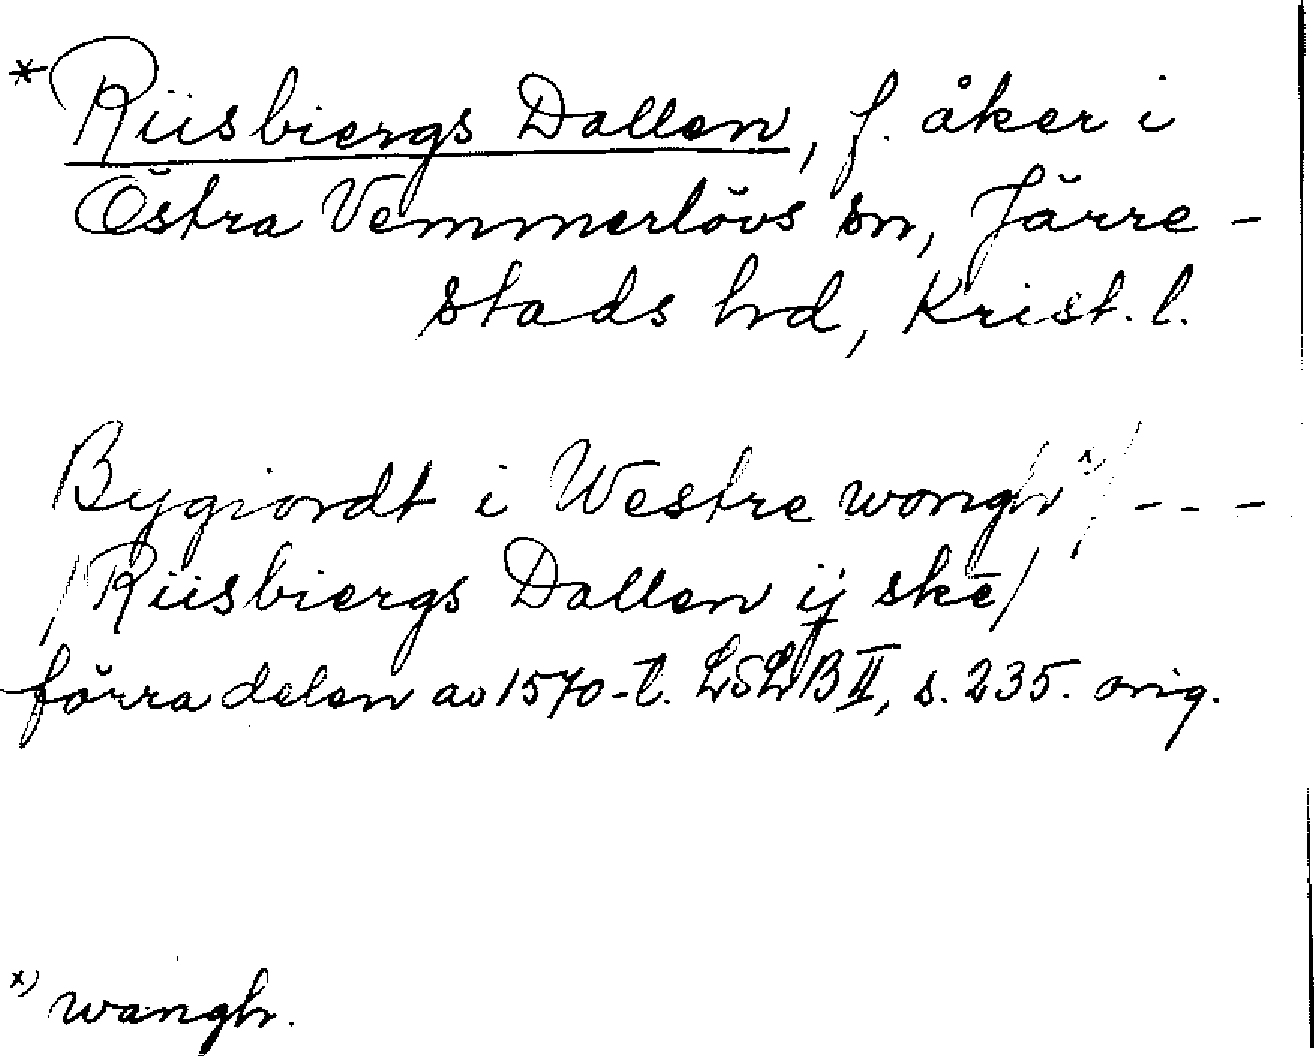 * Riisbiergs Dallen, f. åker i
Östra Vemmerlövs sn, Järre-
stads hrd, Krist. l.
Bygiordt i Westre wongh x) / - - -
/ Riisbiergs Dallen ij ske /
förra delen av 1570-t. LSLB II, s. 235. orig.
x) wangh.